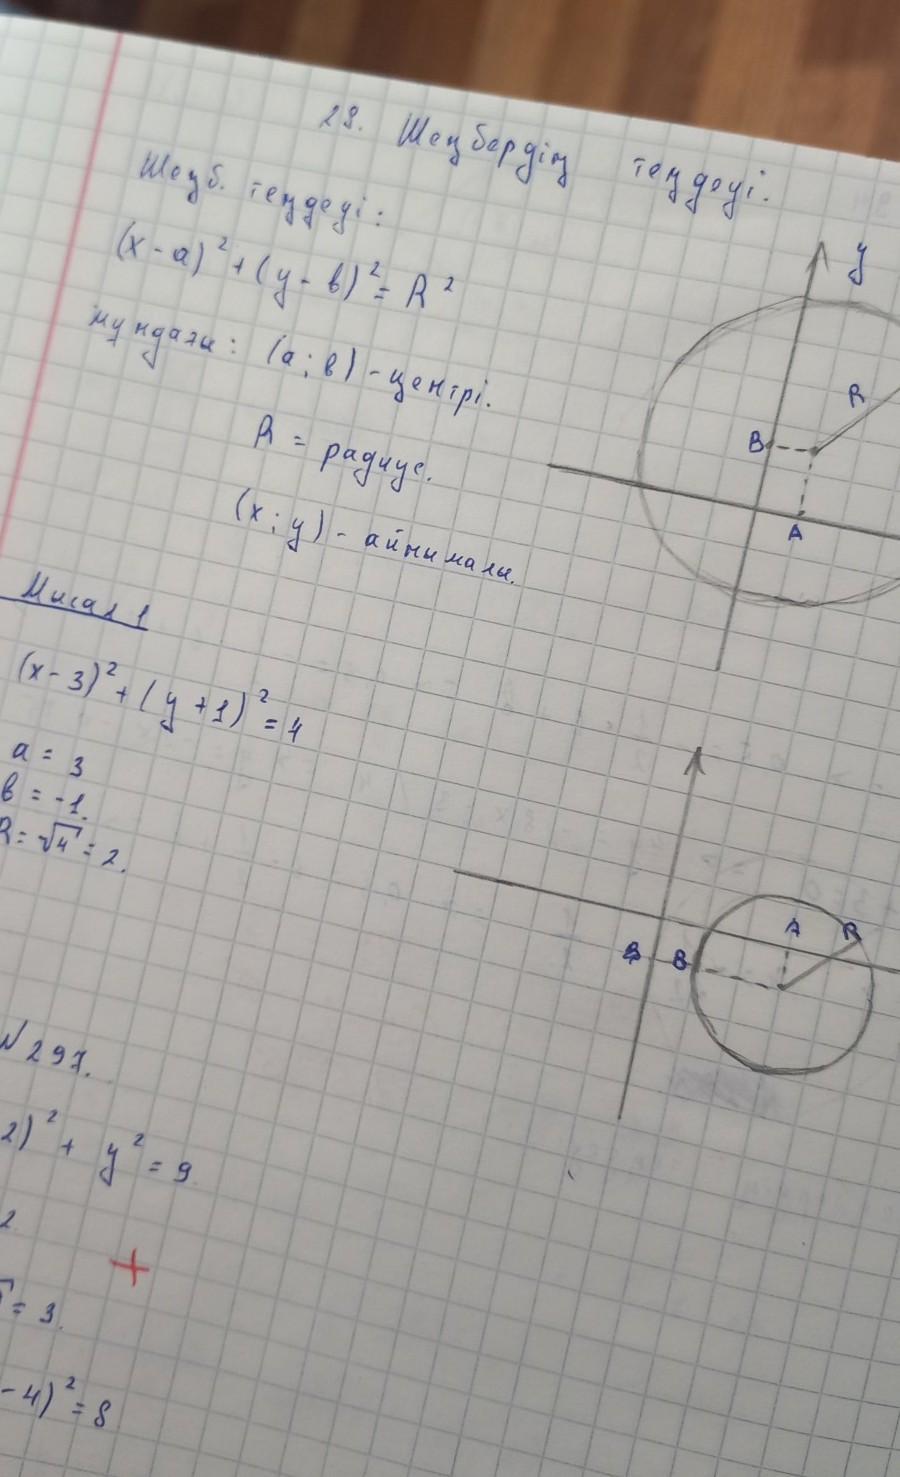 28. Шеңбердің теңдеуі.
Шеңб. теңдеуі:
(x - a)² + (y - в)² = R²
мұндағы: (a; в) - центрі.
R = радиус.
(x; y) - айнымалы.
y
R
B
A
Мысал 1
(x - 3)² + (y + 1)² = 4
a = 3
в = -1.
R = √4 = 2.
A
R
B
N 297.
2)² + y² = 9
2
= 3.
- 4)² = 8